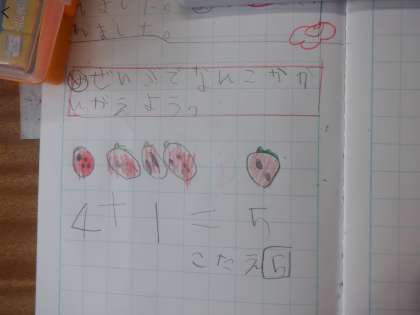 れました。
めぜんぶでなんこかが
んがえよう。
4+1=5
こたえ5